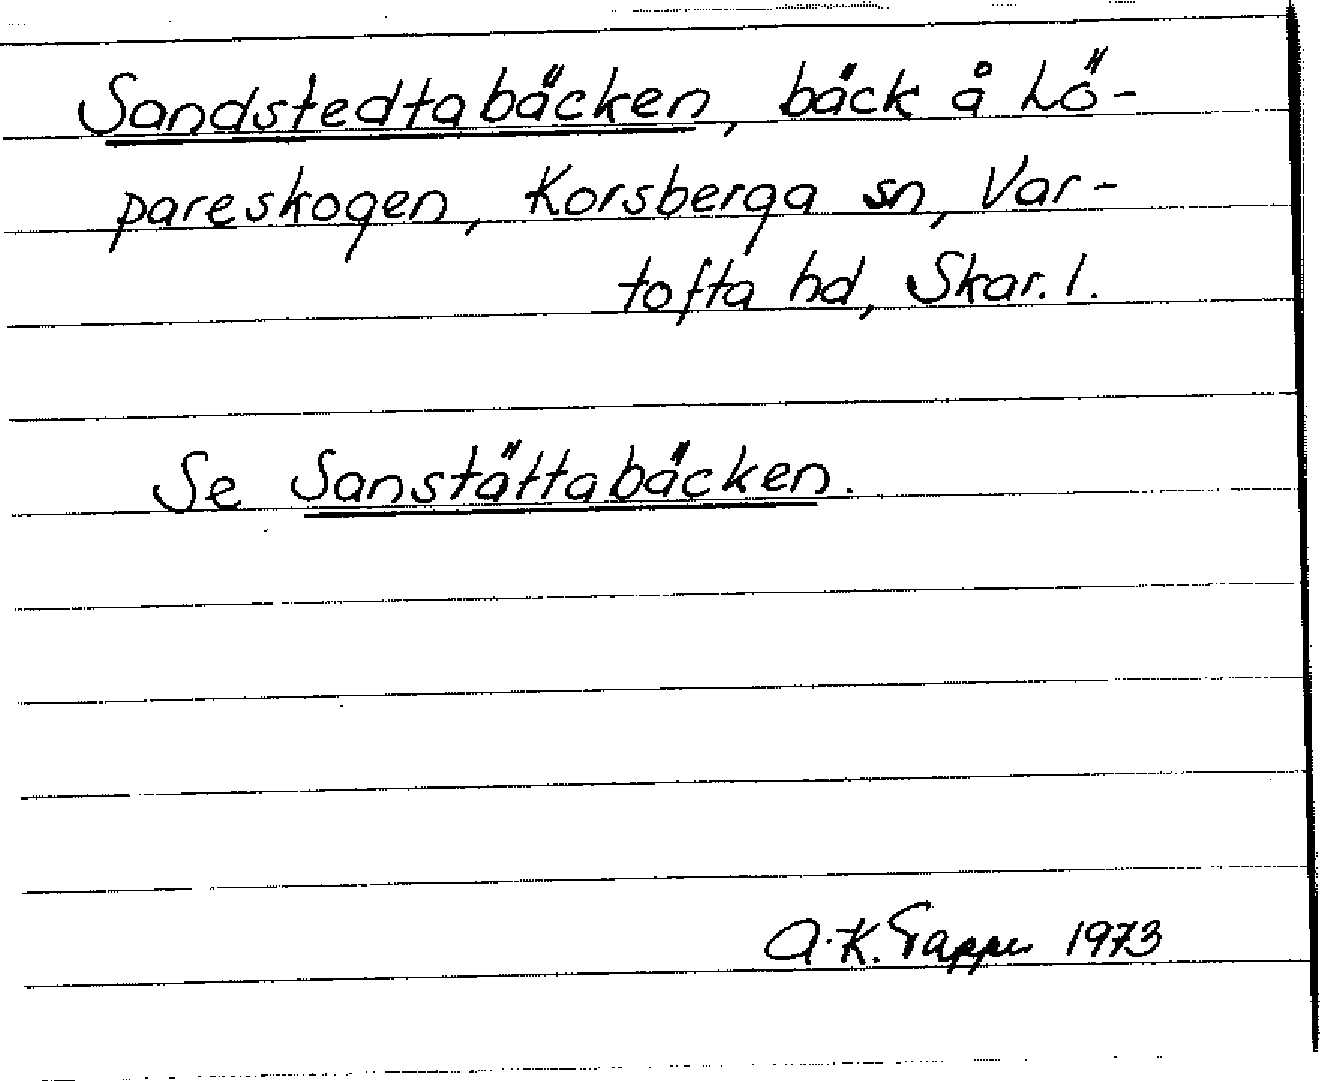 Sandstedtabäcken, bäck å Lö-
pareskogen, Korsberga sn, Var-
tofta hd, Skar. l.
Se Sanstättabäcken.
A.K. 1973